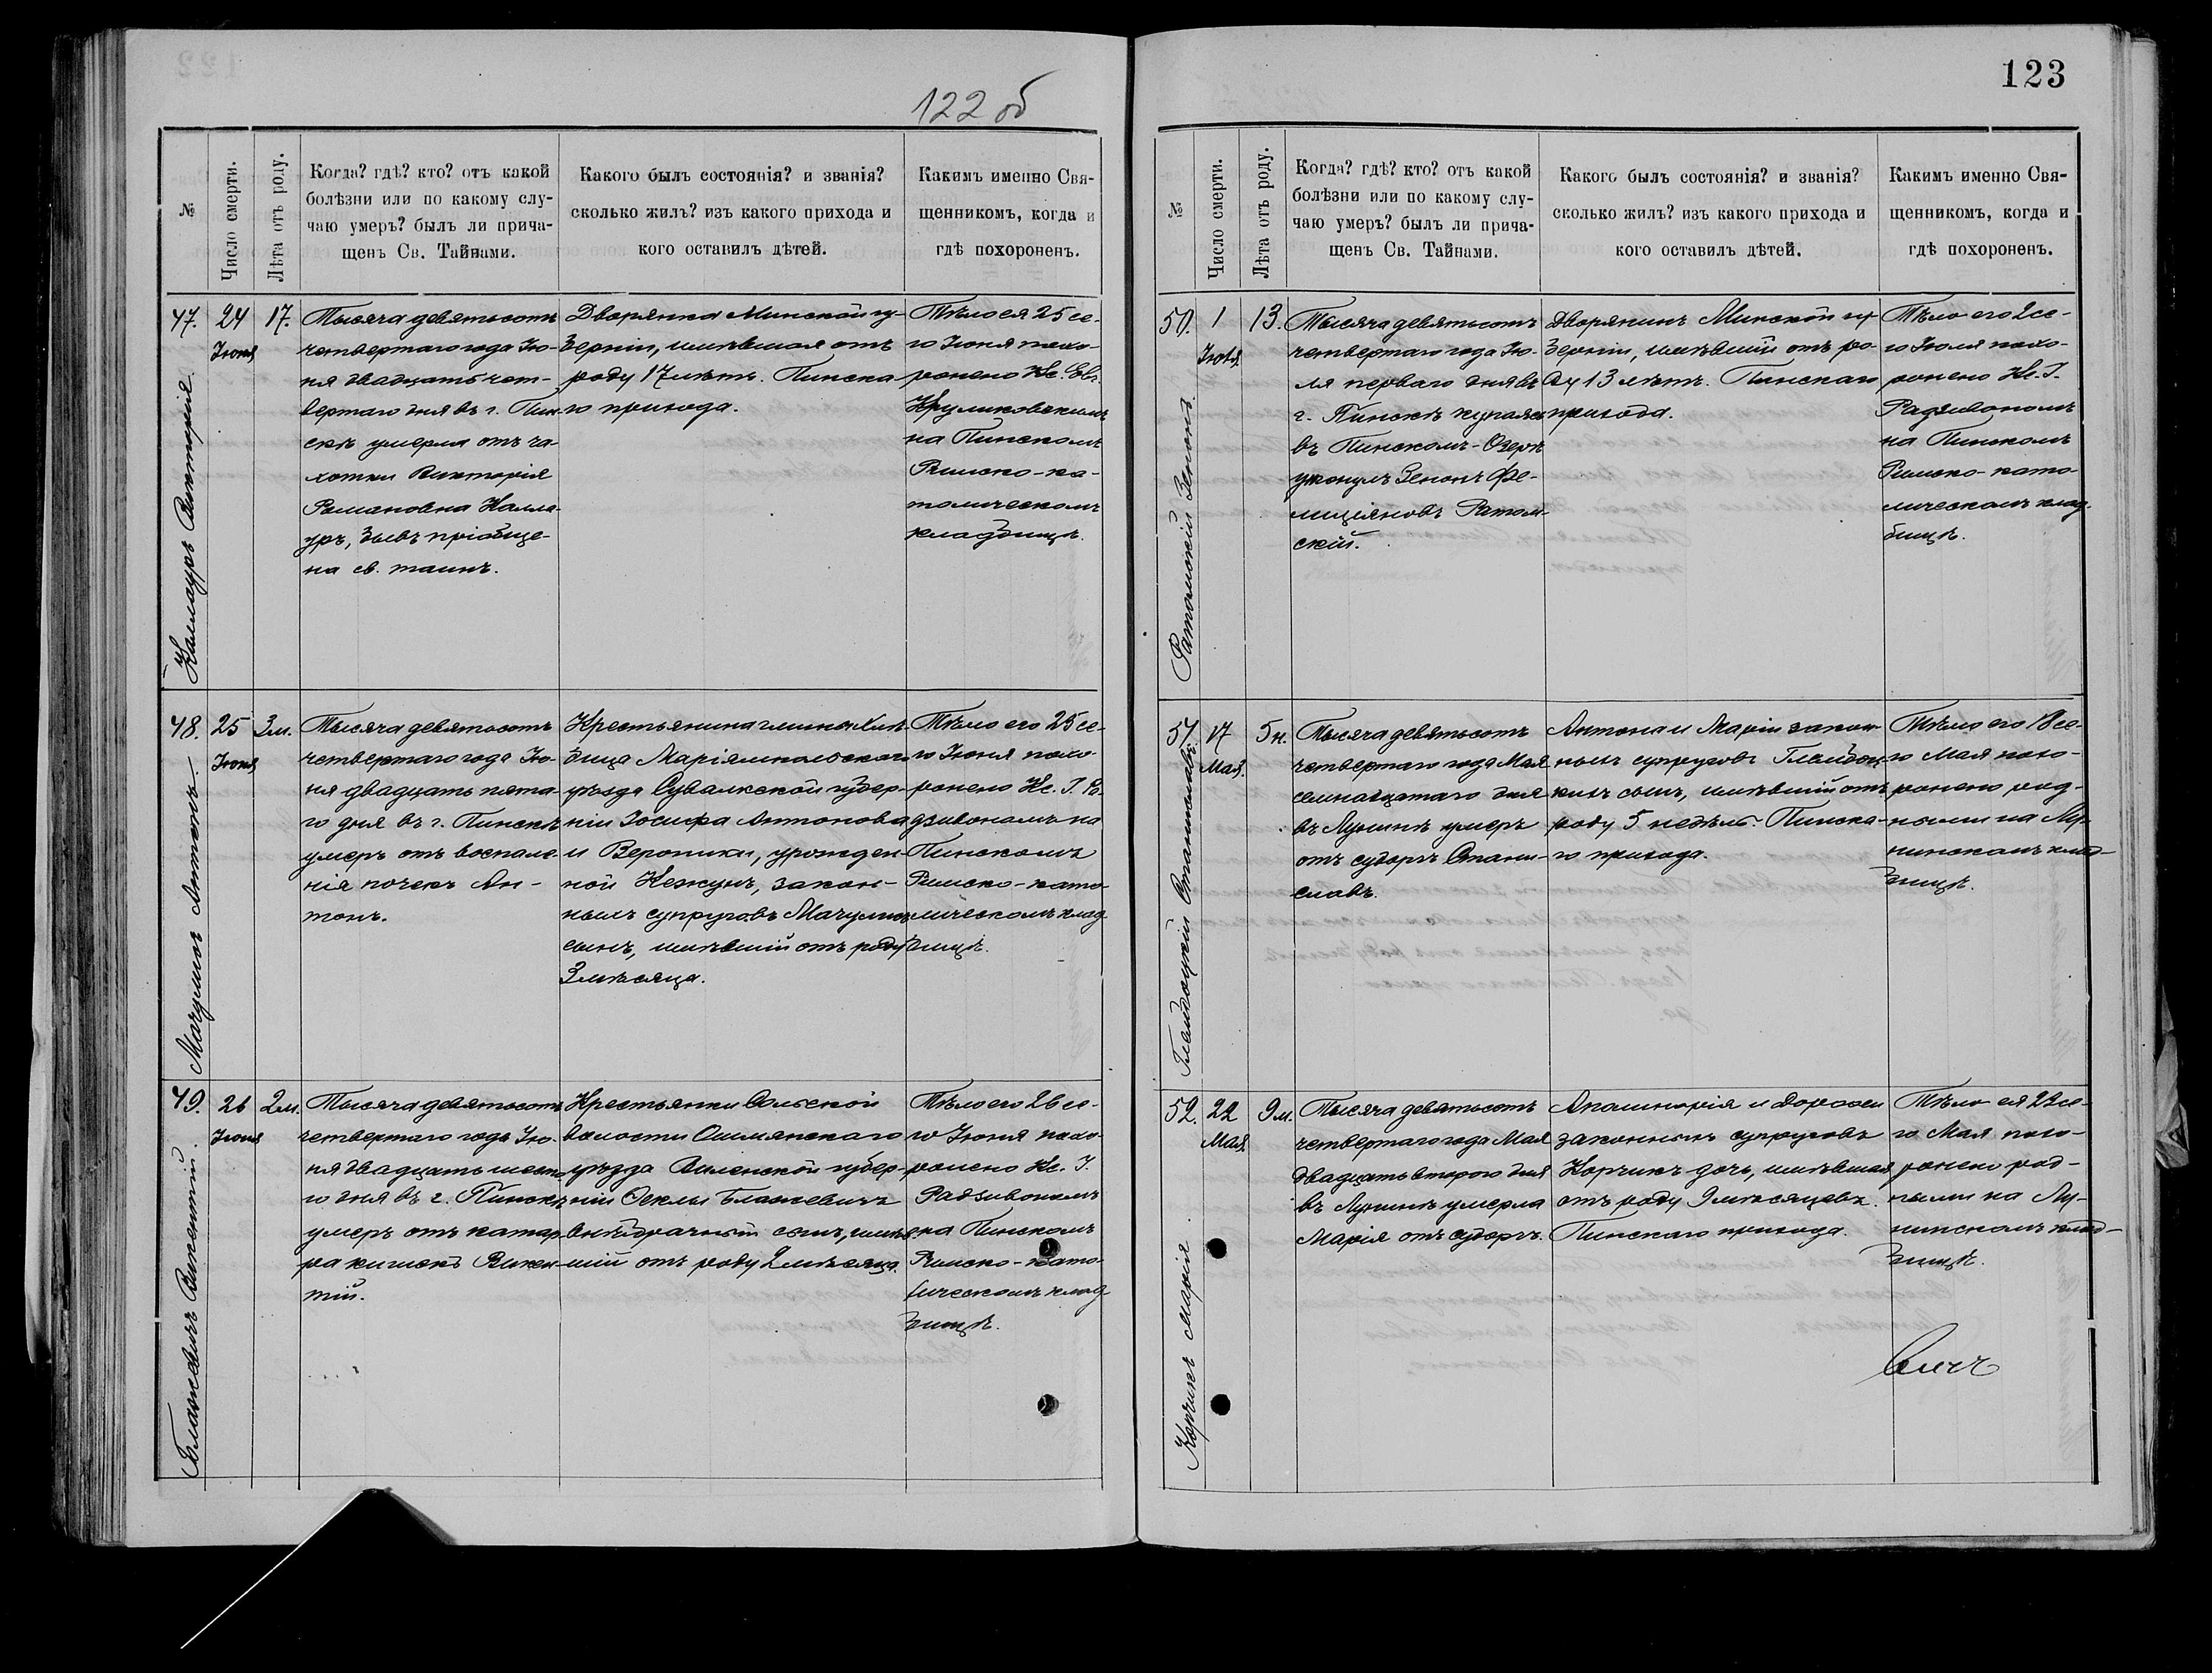 122 об
№
Число смерти.
Лѣта отъ роду.
Когда? гдѣ? кто? отъ какой
болѣзни или по какому слу-
чаю умеръ? былъ ли прича-
щенъ Св. Тайнами.
Какого былъ состоянія? и званія?
сколько жилъ? изъ какого прихода и
кого оставилъ дѣтей.
Какимъ именно Свя-
щенникомъ, когда и
гдѣ похороненъ.
Каллауръ Викторія.
47.
24
Іюня
17.
Тысяча девятьсотъ
четвертаго года Ію-
ня двадцать чет-
вертаго дня въ г. Пин-
скѣ умерла отъ ча-
хотки Викторія
Романовна Калла-
уръ, бывъ пріобще-
на св. таинъ.
Дворянка Минской гу-
берніи, имѣвшая отъ
роду 17 лѣтъ. Пинска-
го прихода.
Тѣло ея 25 се-
го Іюня похо-
ронено Кс. Евг.
Круликовскимъ
на Пинскомъ
Римско-ка-
толическомъ
кладбищѣ.
Мачулисъ Антонъ.
48.
25
Іюня
3 м.
Тысяча девятьсотъ
четвертаго года Ію-
ня двадцать пята-
го дня въ г. Пинскѣ
умеръ отъ воспале-
нія почекъ Ан-
тонъ.
Крестьянина гмины
Маріямпольскаго
уѣзда Сувалкской губер-
ніи Іосифа Антонова
и Вероники, урожден-
ной закон-
ныхъ супруговъ
сынъ, имѣвшій отъ роду
3 мѣсяца.
Тѣло его 25 се-
го Іюня похо-
ронено Кс. І. Ра-
дзивономъ на
Пинскомъ
Римско-като-
лическомъ клад-
бищѣ.
Блажевичъ Викентій.
49.
26
Іюня
2 м.
Тысяча девятьсотъ
четвертаго года Ію-
ня двадцать шеста-
го дня въ г. Пинскѣ
умеръ отъ катар-
ра кишокъ Викен-
тій.
Крестьянки Сольской
волости Ошмянскаго
уѣзда Виленской губер-
ніи Ѳеклы Блажевичъ
внѣбрачный сынъ, имѣв-
шій отъ роду 2 мѣсяца.
Тѣло его 26 се-
го Іюня похо-
ронено Кс. І.
Радзивономъ
на Пинскомъ
Римско-като-
лическомъ клад-
бищѣ.
123
№
Число смерти.
Лѣта отъ роду.
Когда? гдѣ? кто? отъ какой
болѣзни или по какому слу-
чаю умеръ? былъ ли прича-
щенъ Св. Тайнами.
Какого былъ состоянія? и званія?
сколько жилъ? изъ какого прихода и
кого оставилъ дѣтей.
Какимъ именно Свя-
щенникомъ, когда и
гдѣ похороненъ.
Ратомскій Зенонъ.
50.
1
Іюля
13.
Тысяча девятьсотъ
четвертаго года Ію-
ля перваго дня въ
г. Пинскѣ купаясь
въ Пинскомъ-Озерѣ
утонулъ Зенонъ Фе-
лиціяновъ Ратом-
скій.
Дворянинъ Минской гу-
берніи, имѣвшій отъ ро-
ду 13 лѣтъ. Пинскаго
прихода.
Тѣло его 2 се-
го Іюля похо-
ронено Кс. І.
Радзивономъ
на Пинскомъ
Римско-като-
лическомъ клад-
бищѣ.
Станиславъ.
51.
17
Мая.
5 н.
Тысяча девятьсотъ
четвертаго года Мая
семнадцатаго дня
въ Лунинѣ умеръ
отъ судоргъ Стани-
славъ.
Антона и Маріи закон-
ныхъ супруговъ
сынъ, имѣвшій отъ
роду 5 недѣль. Пинска-
го прихода.
Тѣло его 18 се-
го Мая похо-
ронено род-
ными на Лу-
нинскомъ клад-
бищѣ.
Корчикъ Марія.
52.
22
Мая
9 м.
Тысяча девятьсотъ
четвертаго года Мая
двадцать второго дня
въ Лунинѣ умерла
Марія отъ судоргъ.
Аполинарія и Дороѳеи
законныхъ супруговъ
Корчикъ дочь, имѣвшая
отъ роду 9 мѣсяцевъ.
Пинскаго прихода.
Тѣло ея 22 се-
го Мая похо-
ронено род-
ными на Лу-
нинскомъ клад-
бищѣ.